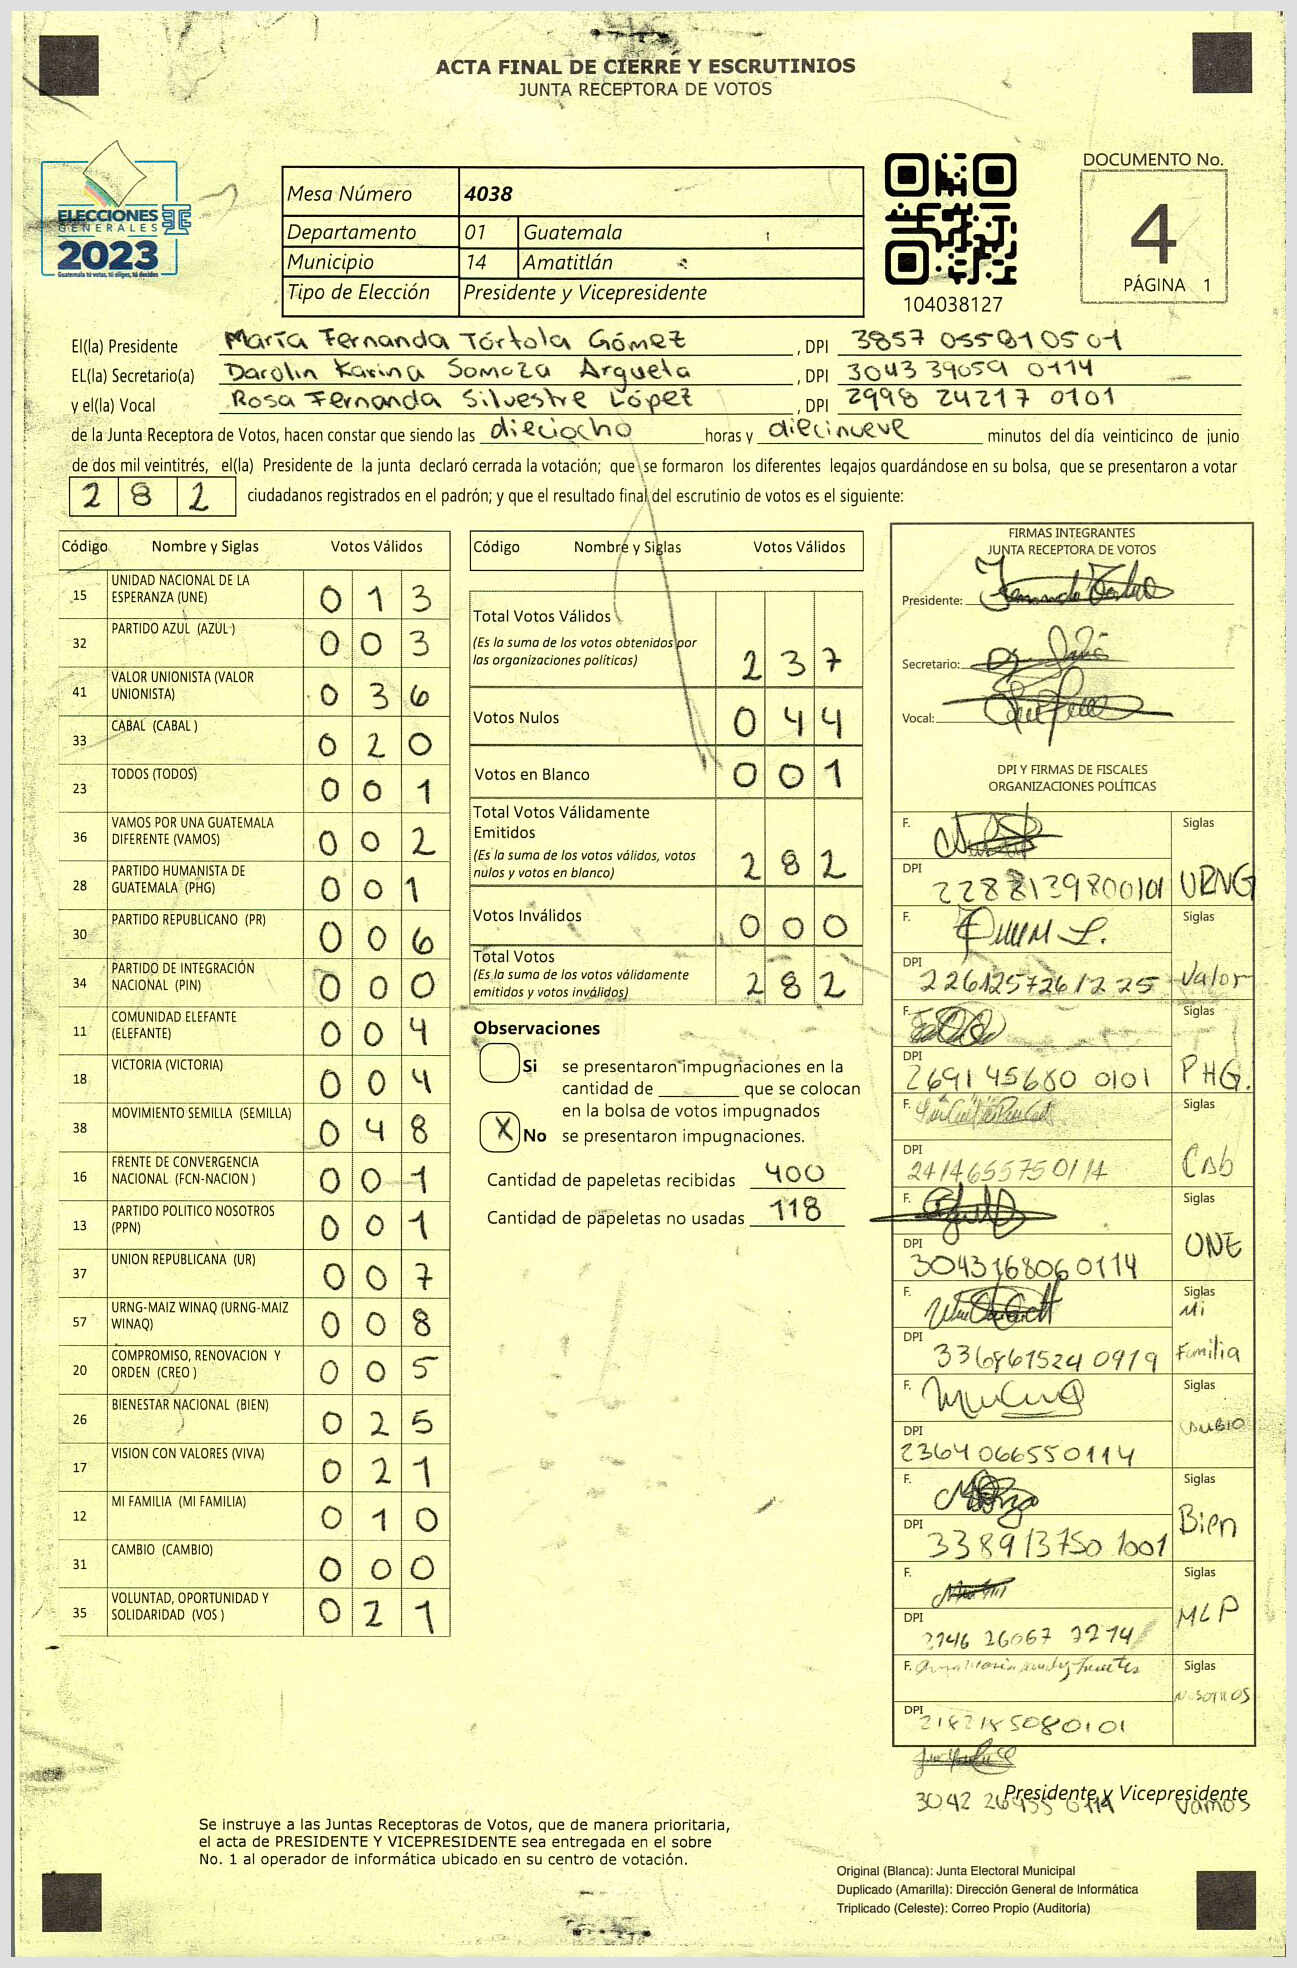 ACTA FINAL DE CIERRE Y ESCRUTINIOS
JUNTA RECEPTORA DE VOTOS
ELECCIONES
GENERALES
2023
Guatemala tú votas, tú eliges, tú decides
Mesa Número 4038
Departamento 01 Guatemala
Municipio 14 Amatitlán
Tipo de Elección Presidente y Vicepresidente
104038127
DOCUMENTO No.
4
PÁGINA 1
El(la) Presidente María Fernanda Tórtola Gómez, DPI 3857 055810501
EL(la) Secretario(a) Darolin Karina Somoza Argueta, DPI 3043 39059 0114
y el(la) Vocal Rosa Fernanda Silvestre López, DPI 2998 24217 0101
de la Junta Receptora de Votos, hacen constar que siendo las dieciocho horas y diecinueve minutos del día veinticinco de junio
de dos mil veintitrés, el(la) Presidente de la junta declaró cerrada la votación; que se formaron los diferentes legajos guardándose en su bolsa, que se presentaron a votar
282 ciudadanos registrados en el padrón; y que el resultado final del escrutinio de votos es el siguiente:
Código Nombre y Siglas Votos Válidos
15 UNIDAD NACIONAL DE LA ESPERANZA (UNE) 013
32 PARTIDO AZUL (AZUL ) 003
41 VALOR UNIONISTA (VALOR UNIONISTA) 036
33 CABAL (CABAL ) 020
23 TODOS (TODOS) 001
36 VAMOS POR UNA GUATEMALA DIFERENTE (VAMOS) 002
28 PARTIDO HUMANISTA DE GUATEMALA (PHG) 001
30 PARTIDO REPUBLICANO (PR) 006
34 PARTIDO DE INTEGRACIÓN NACIONAL (PIN) 000
11 COMUNIDAD ELEFANTE (ELEFANTE) 004
18 VICTORIA (VICTORIA) 004
38 MOVIMIENTO SEMILLA (SEMILLA) 048
16 FRENTE DE CONVERGENCIA NACIONAL (FCN-NACION ) 001
13 PARTIDO POLITICO NOSOTROS (PPN) 001
37 UNION REPUBLICANA (UR) 007
57 URNG-MAIZ WINAQ (URNG-MAIZ WINAQ) 008
20 COMPROMISO, RENOVACION Y ORDEN (CREO ) 005
26 BIENESTAR NACIONAL (BIEN) 025
17 VISION CON VALORES (VIVA) 021
12 MI FAMILIA (MI FAMILIA) 010
31 CAMBIO (CAMBIO) 000
35 VOLUNTAD, OPORTUNIDAD Y SOLIDARIDAD (VOS ) 021
Código Nombre y Siglas Votos Válidos
Total Votos Válidos
(Es la suma de los votos obtenidos por
las organizaciones políticas) 237
Votos Nulos 044
Votos en Blanco 001
Total Votos Válidamente
Emitidos
(Es la suma de los votos válidos, votos
nulos y votos en blanco) 282
Votos Inválidos 000
Total Votos
(Es la suma de los votos válidamente
emitidos y votos inválidos) 282
Observaciones
Si se presentaron impugnaciones en la
cantidad de ________ que se colocan
en la bolsa de votos impugnados
X No se presentaron impugnaciones.
Cantidad de papeletas recibidas 400
Cantidad de papeletas no usadas 118
FIRMAS INTEGRANTES
JUNTA RECEPTORA DE VOTOS
Presidente:
Secretario:
Vocal:
DPI Y FIRMAS DE FISCALES
ORGANIZACIONES POLÍTICAS
F. Siglas
DPI 2288139800101 URNG
F. Siglas
DPI 2261257261225 Valor
F. Siglas
DPI 2691 45680 0101 PHG.
F. Siglas
DPI 2414655750114 Cab
F. Siglas
DPI 3043168060114 UNE
F. Siglas
DPI 3368615240919 Mi Familia
F. Siglas
DPI 2364066550114 CAMBIO
F. Siglas
DPI 338913750 1001 Bien
F. Siglas
DPI MLP
F. Siglas
DPI 2182185080101 NOSOTROS
Presidente y Vicepresidente
3042 26455 0114 Vamos
Se instruye a las Juntas Receptoras de Votos, que de manera prioritaria,
el acta de PRESIDENTE Y VICEPRESIDENTE sea entregada en el sobre
No. 1 al operador de informática ubicado en su centro de votación.
Original (Blanca): Junta Electoral Municipal
Duplicado (Amarilla): Dirección General de Informática
Triplicado (Celeste): Correo Propio (Auditoría)